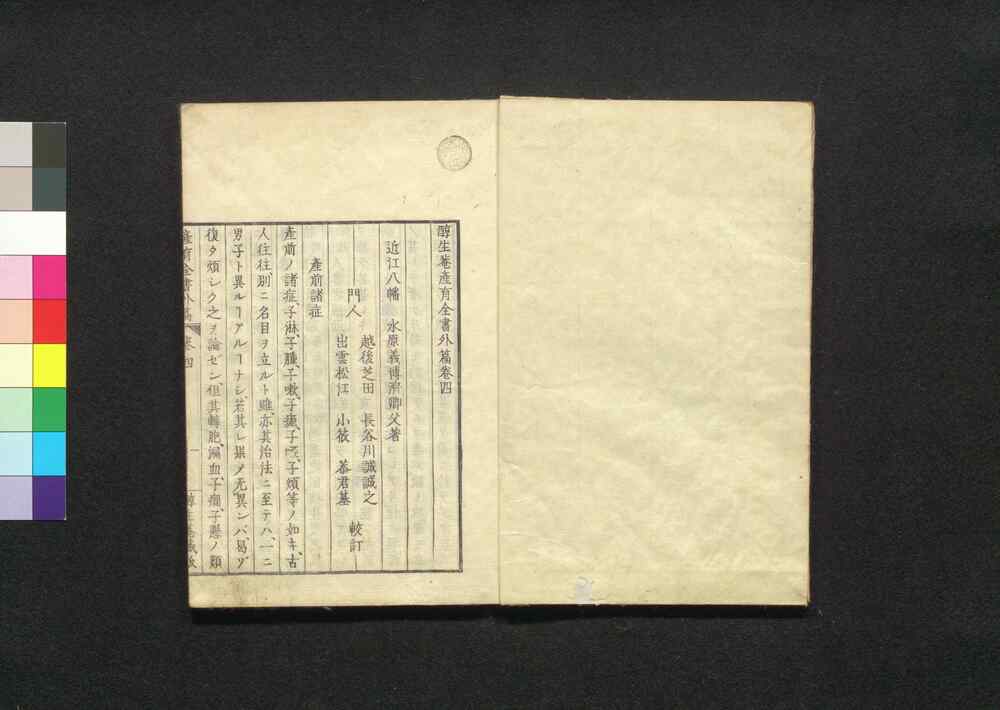 醇生菴產育全書外篇卷四
近江八幡 水原義博濟卿父著
門人
越後芝田 長谷川誠誠之
出雲松江 小筱 菶君墓
較訂
產前諸症
產前ノ諸症、子淋、子腫、子嗽、子癇、子瘂、子煩等ノ如キ、古
人往往、別ニ名目ヲ立ルト雖、亦其治法ニ至テハ、一ニ
男子ト異ルヿアルヿナシ、若其レ果メ无異ンバ、曷ゾ
復タ煩シク之ヲ論ゼン、但其轉胞、漏血、子癇、子懸ノ類
產育全書外篇 卷四 一